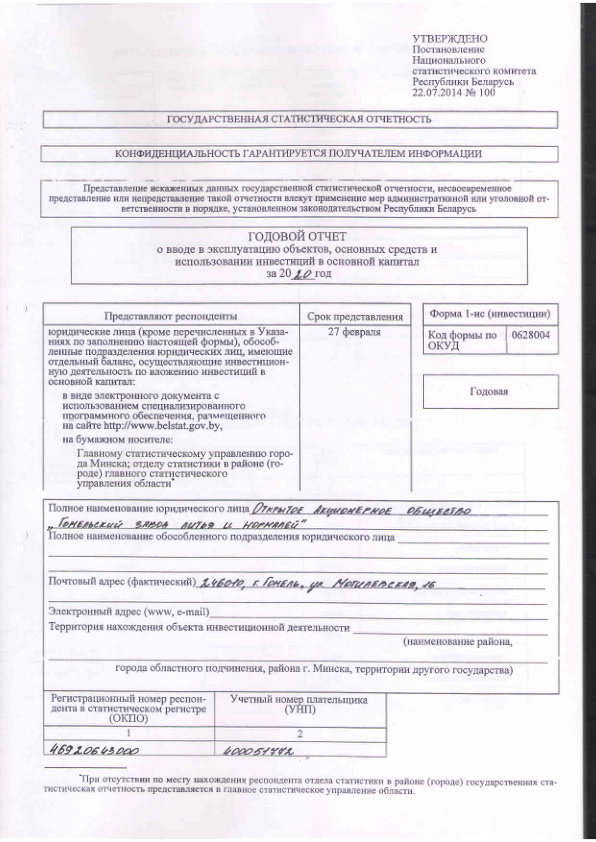 УТВЕРЖДЕНО
Постановление
Национального
статистического комитета
Республики Беларусь
22.07.2014 № 100
ГОСУДАРСТВЕННАЯ СТАТИСТИЧЕСКАЯ ОТЧЕТНОСТЬ
КОНФИДЕНЦИАЛЬНОСТЬ ГАРАНТИРУЕТСЯ ПОЛУЧАТЕЛЕМ ИНФОРМАЦИИ
Представление искаженных данных государственной статистической отчетности, несвоевременное
представление или непредставление такой отчетности влекут применение мер административной или уголовной от-
ветственности в порядке, установленном законодательством Республики Беларусь
ГОДОВОЙ ОТЧЕТ
о вводе в эксплуатацию объектов, основных средств и
использовании инвестиций в основной капитал
за 2020 год
Представляют респонденты
Срок представления
юридические лица (кроме перечисленных в Указа-
ниях по заполнению настоящей формы), обособ-
ленные подразделения юридических лиц, имеющие
отдельный баланс, осуществляющие инвестицион-
ную деятельность по вложению инвестиций в
основной капитал:
в виде электронного документа с
использованием специализированного
программного обеспечения, размещенного
на сайте http://www.belstat.gov.by,
на бумажном носителе:
Главному статистическому управлению горо-
да Минска; отделу статистики в районе (го-
роде) главного статистического
управления области*
27 февраля
Форма 1-ис (инвестиции)
Код формы по
ОКУД
0628004
Годовая
Полное наименование юридического лица Открытое Акционерное общество
"Гомельский завод литья и нормалей"
Полное наименование обособленного подразделения юридического лица
Почтовый адрес (фактический) 246010, г. Гомель, ул. Могилевская, 16
Электронный адрес (www, e-mail)
Территория нахождения объекта инвестиционной деятельности
(наименование района,
города областного подчинения, района г. Минска, территории другого государства)
Регистрационный номер респон-
дента в статистическом регистре
(ОКПО)
Учетный номер плательщика
(УНП)
1
2
*При отсутствии по месту нахождения респондента отдела статистики в районе (городе) государственная ста-
тистическая отчетность представляется в главное статистическое управление области.